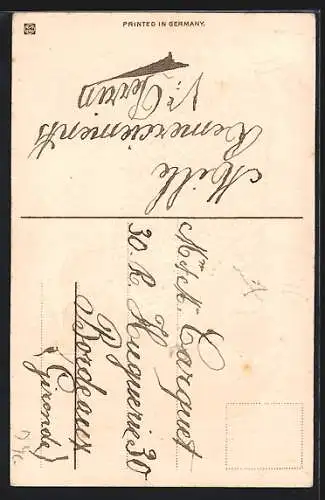 PRINTED IN GERMANY.
Mille
Remerciements
Vve Perrin
Mr & Mme Carquet
30. R. Huguerie 30
Bordeaux
(Gironde)